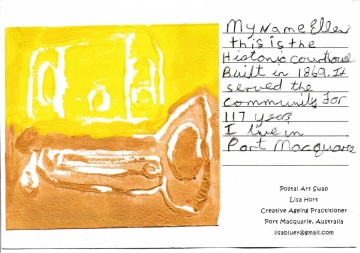 My Name Ellen
this is the
Historic courthouse
Built in 1869. It
served the
community For
117 years
I live in
Port Macquarie
Postal Art Swap
Lisa Hort
Creative Ageing Practitioner
Port Macquarie, Australia
lisabluer@gmail.com